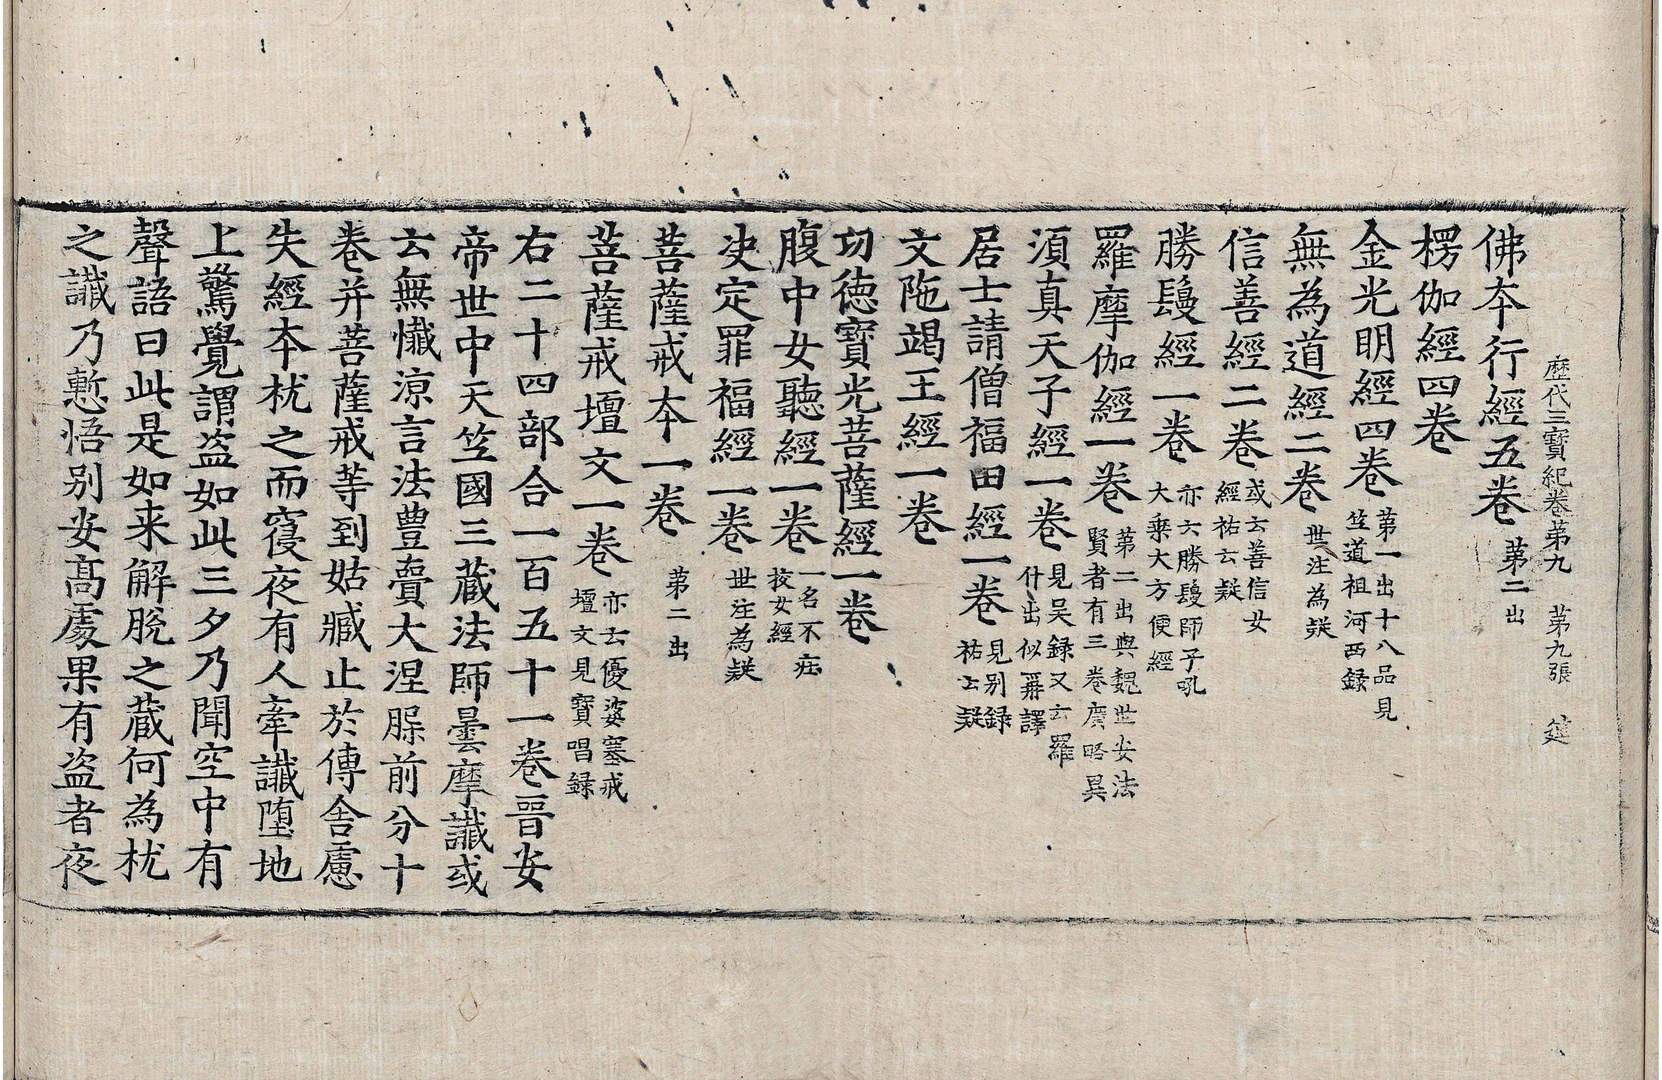 歷代三寶紀卷第九 第九張 筵
佛本行經五卷 第二出
楞伽經四卷
金光明經四卷 第一出十八品見竺道祖河西録
無為道經二卷 世注為疑
信善經二卷 或云善信女經祐云疑
勝鬘經一卷 亦云勝鬘師子吼大乗大方便經
羅摩伽經一卷 第二出與魏世安法賢者有三卷廣略異
須真天子經一卷 見吴録又云羅什出似再譯
居士請僧福田經一卷 見别録祐云疑
文陁竭王經一卷
功德寶光菩薩經一卷
腹中女聽經一卷 一名不疰挍女經
決定罪福經一卷 世注為疑
菩薩戒本一卷 第二出
菩薩戒壇文一卷 亦云優婆塞戒壇文見寶唱録
右二十四部合一百五十一卷晉安
帝世中天竺國三蔵法師曇摩讖或
云無懺涼言法豊賷大涅槃前分十
卷并菩薩戒等到姑臧止於傳舍慮
失經本枕之而寑夜有人牽讖墮地
上驚覺謂盗如此三夕乃聞空中有
聲語曰此是如来解脫之蔵何為枕
之讖乃慙悟别安髙處果有盗者夜